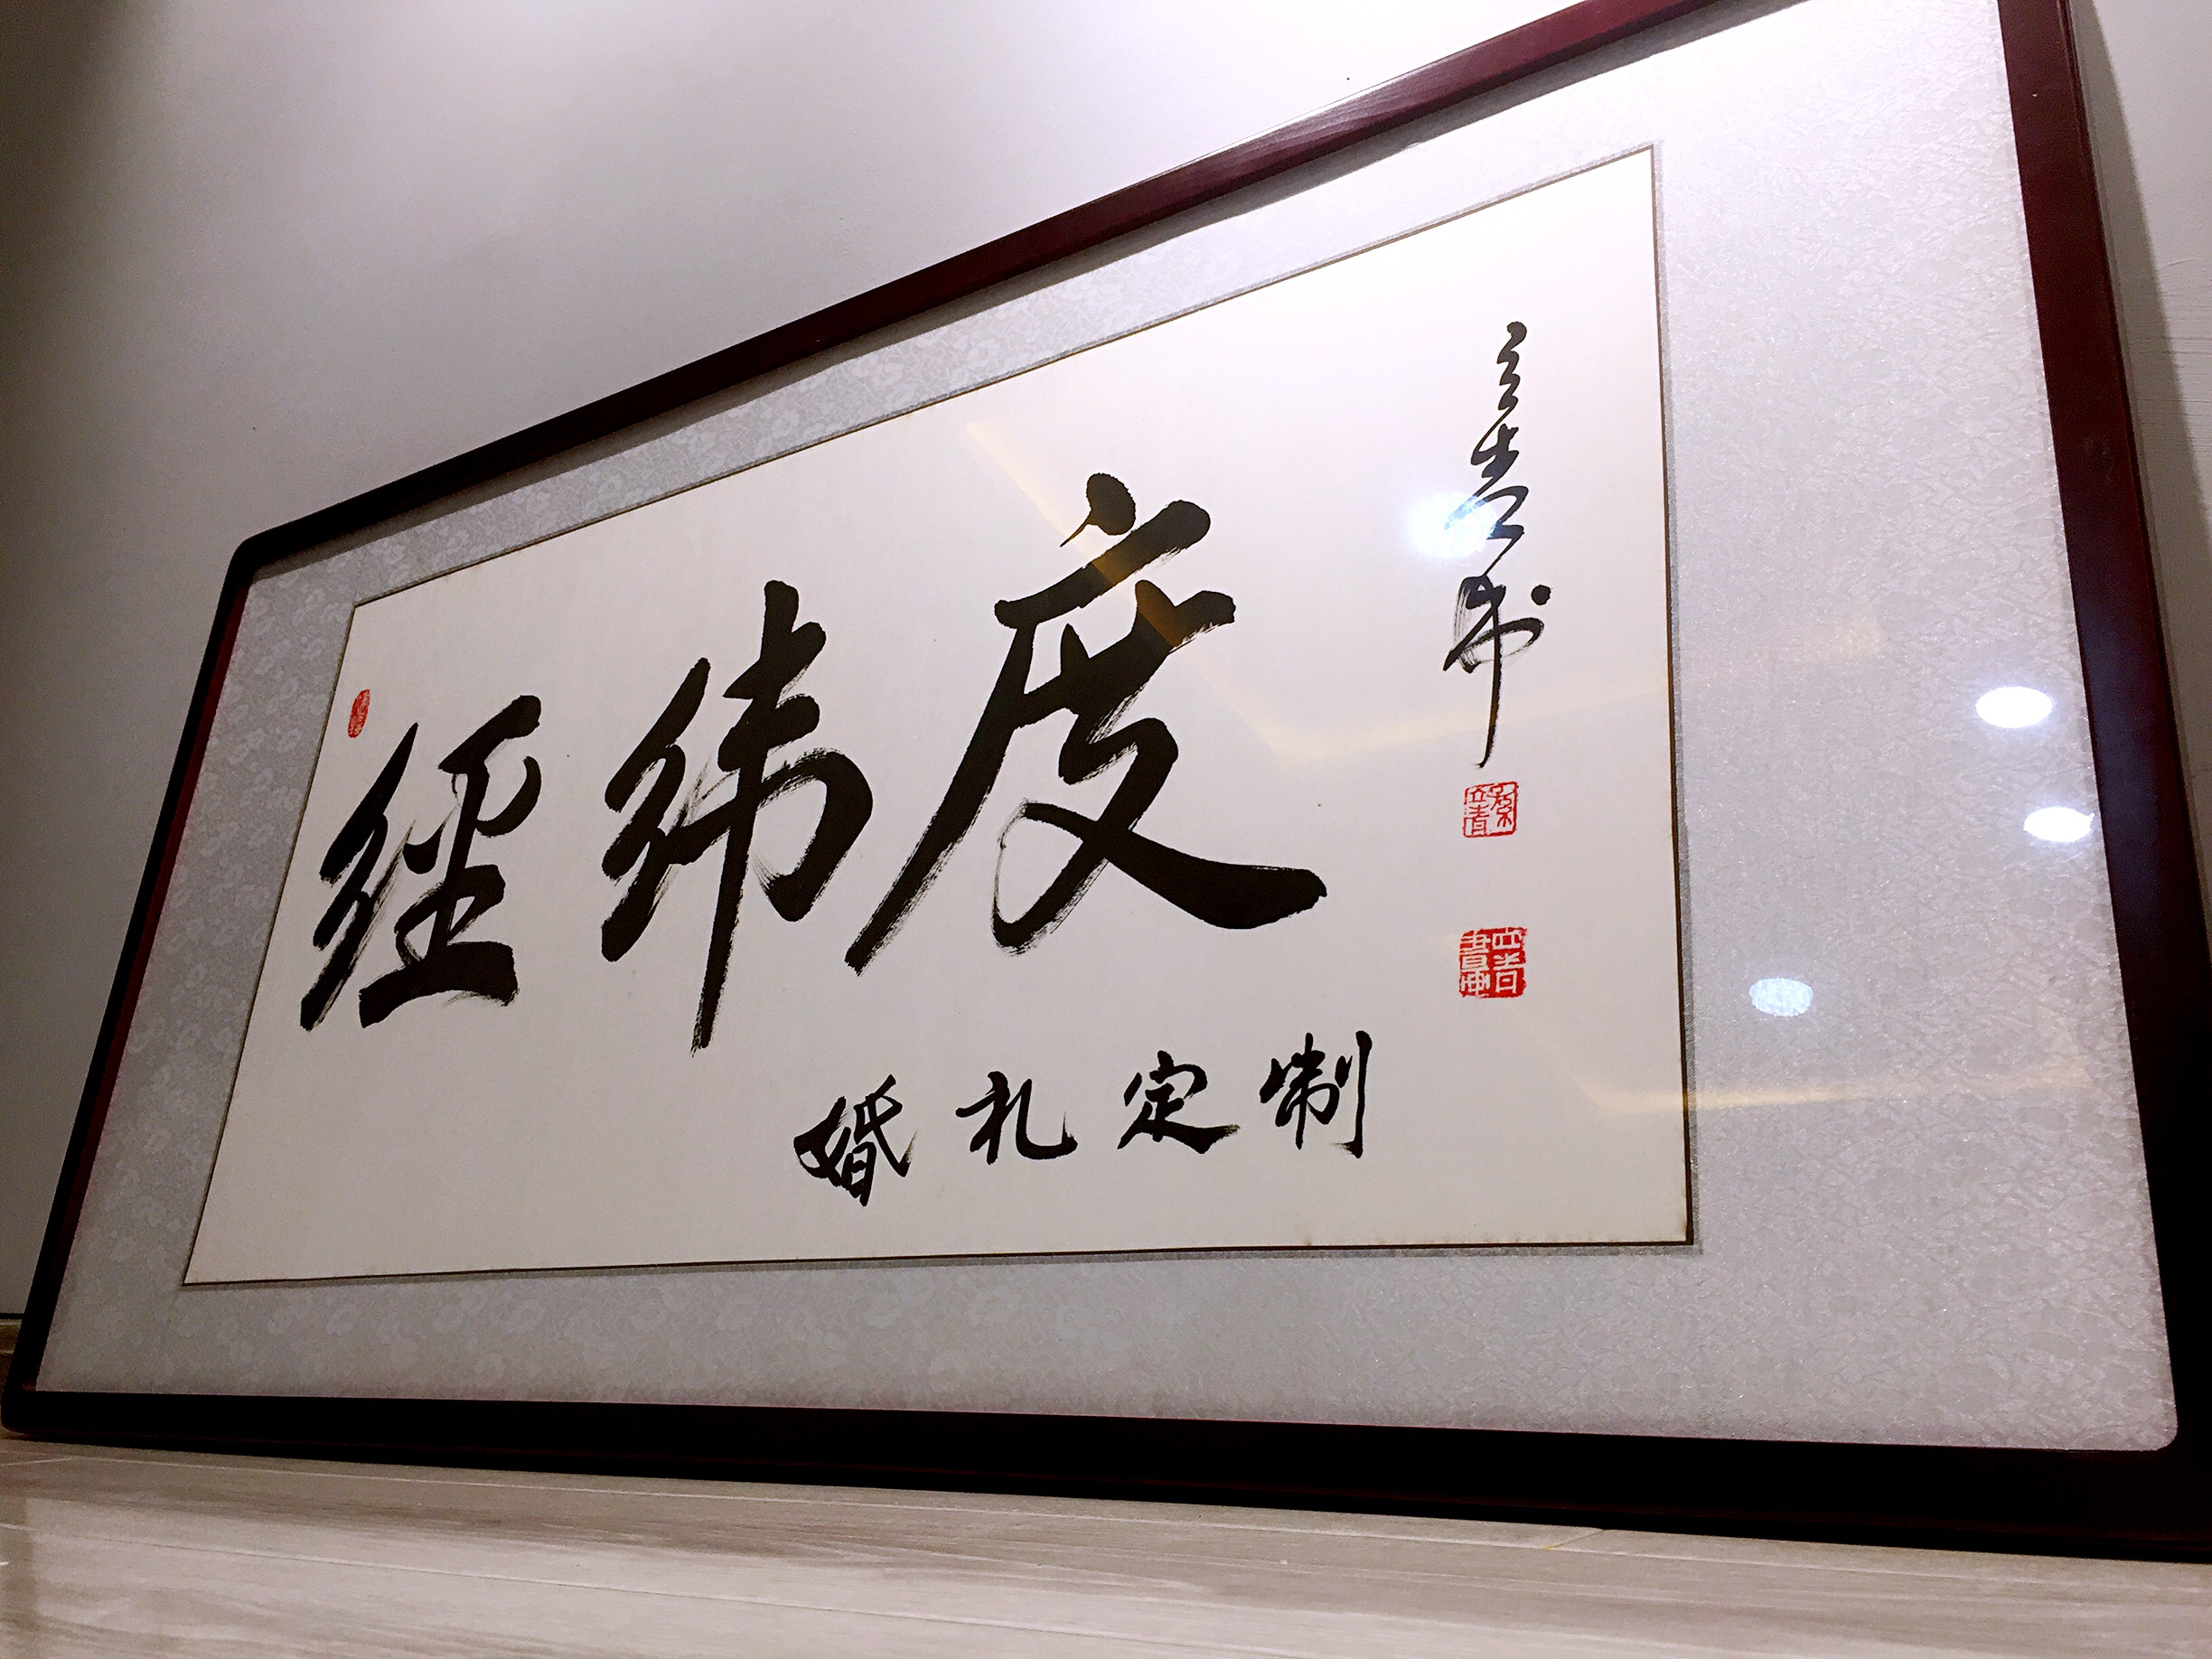 經纬度
婚礼定制
立青书